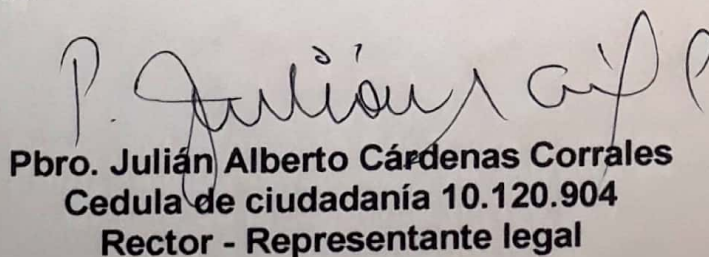 P. Julián
Pbro. Julián Alberto Cárdenas Corrales
Cedula de ciudadanía 10.120.904
Rector - Representante legal